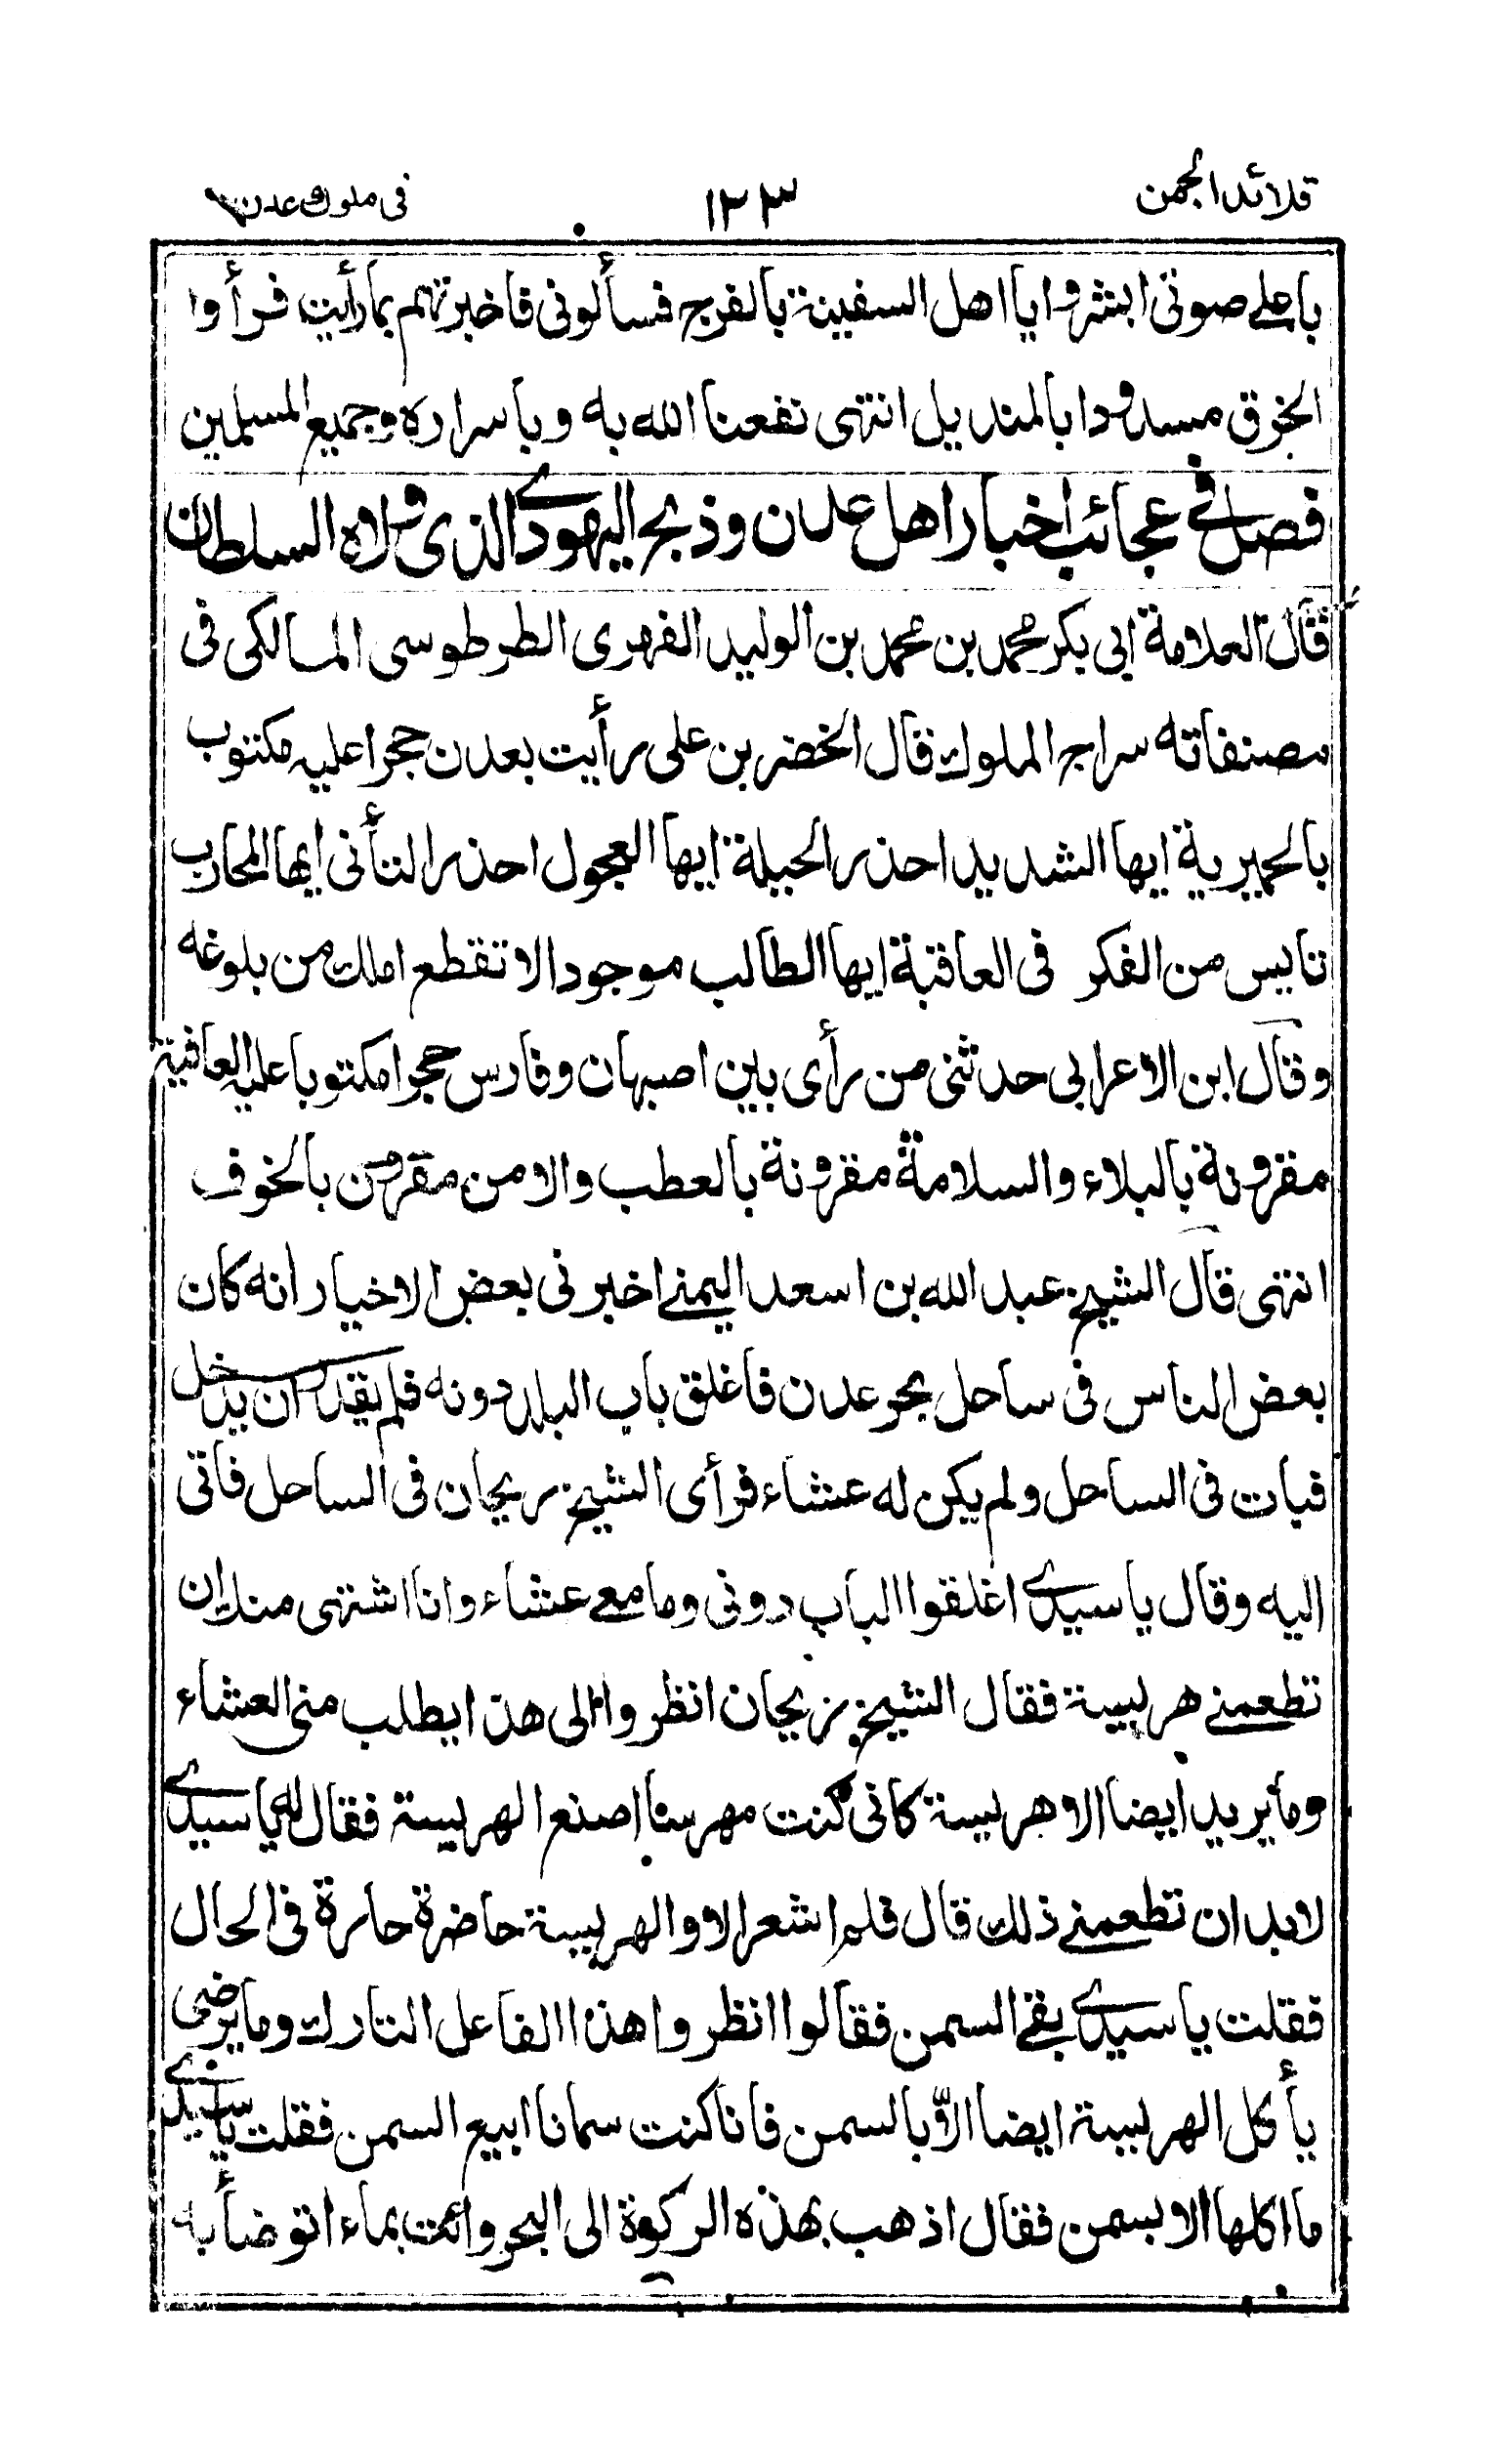 قلائد الجمن ١٢٣ فى ملوك عدن
باعلى صوتى ابشروا يا اهل السفينة بالفرج فسألونى فاخبرتهم بما رأيت فرأوا
الخرق مسدودا بالمنديل انتهى نفعنا الله به وباسراره وجميع المسلمين
فصل فى عجائب اخبار اهل عدن وذبح اليهودى الذى ولاه السلطان
قال العلامة ابى بكر محمد بن محمد بن الوليد الفهرى الطرطوسى المالكى فى
مصنفاته سراج الملوك قال الخضر بن على رأيت بعدن حجرا عليه مكتوب
بالحميرية ايها الشديد احذر الحيلة ايها العجول احذر التأنى ايها المحارب
تايس من الفكر فى العاقبة ايها الطالب موجودا لا تقطع املك من بلوغه
وقال ابن الاعرابى حدثنى من رأى بين اصبهان وفارس حجرا مكتوبا عليه العافية
مقرونة بالبلاء والسلامة مقرونة بالعطب والامن مقرون بالخوف
انتهى قال الشيخ عبد الله بن اسعد اليمنى اخبرنى بعض الاخيار انه كان
بعض الناس فى ساحل بحر عدن فاغلق باب البلد دونه فلم يقدر ان يدخل
فبات فى الساحل ولم يكن له عشاء فرأى الشيخ ريحان فى الساحل فاتى
اليه وقال يا سيدى اغلقوا الباب دونى وما معى عشاء وانا اشتهى منك ان
تطعمنى هريسة فقال الشيخ ريحان انظروا الى هذا يطلب منى العشاء
وما يريد ايضا الا هريسة كانى كنت مهرسا اصنع الهريسة فقال له يا سيدى
لابد ان تطعمنى ذلك قال فلم اشعر الا والهريسة حاضرة حارة فى الحال
فقلت يا سيدى بقى السمن فقالوا انظروا هذا الفاعل التارك وما يرضى
يأكل الهريسة ايضا الا بالسمن فانا كنت سمانا ابيع السمن فقلت يا سيدى
ما اكلها الا بسمن فقال اذهب بهذه الركوة الى البحر وائت بماء اتوضأ به